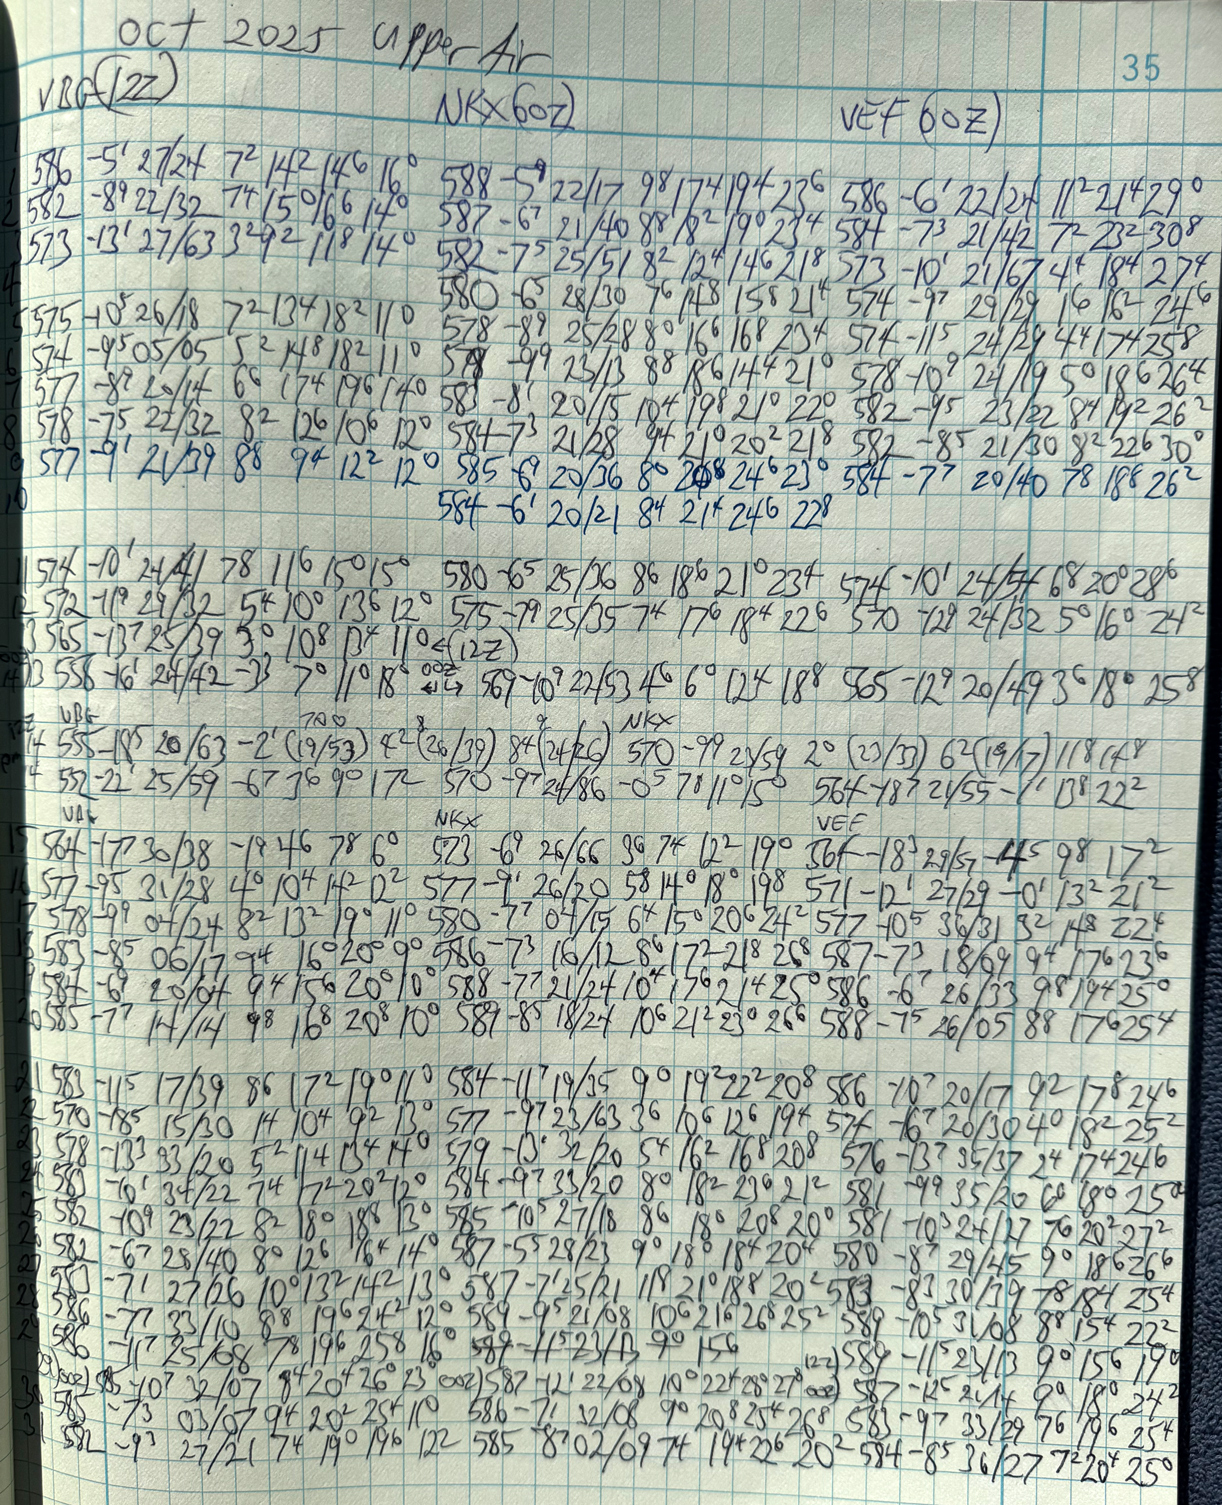 OCT 2025 Upper Air
35
VBG (12Z) NKX (00Z) VEF (00Z)
1 586 -5¹ 27/24 7² 14² 14⁶ 16⁰ 588 -5⁹ 22/17 9⁸ 17⁴ 19⁴ 23⁶ 586 -6¹ 22/24 11² 21⁴ 29⁰
2 582 -8⁹ 22/32 7⁴ 15⁰ 16⁶ 14⁰ 587 -6⁷ 21/40 8⁸ 18² 19⁰ 23⁴ 584 -7³ 21/42 7² 23² 30⁸
3 573 -13¹ 27/63 3² 9² 11⁸ 14⁰ 582 -7⁵ 25/51 8² 12⁴ 14⁶ 21⁸ 573 -10¹ 21/67 4⁴ 18⁴ 27⁴
4 580 -6⁵ 28/30 7⁶ 14⁸ 15⁸ 21⁴ 574 -9⁷ 29/29 1⁶ 16² 24⁶
5 575 -10⁵ 26/18 7² 13⁴ 18² 11⁰ 578 -8⁹ 25/28 8⁰ 16⁶ 16⁸ 23⁴ 574 -11⁵ 24/29 4⁴ 17⁴ 25⁸
6 574 -9⁵ 05/05 5² 14⁸ 18² 11⁰ 578 -9⁹ 23/13 8⁸ 18⁶ 14⁴ 21⁰ 578 -10⁹ 24/19 5⁰ 18⁶ 26⁴
7 577 -8⁹ 20/14 6⁶ 17⁴ 19⁶ 14⁰ 583 -8¹ 20/15 10⁴ 19⁸ 21⁰ 22⁰ 582 -9⁵ 23/22 8⁴ 19² 26²
8 578 -7⁵ 22/32 8² 12⁶ 10⁶ 12⁰ 584 -7³ 21/28 9⁴ 21⁰ 20² 21⁸ 582 -8⁵ 21/30 8² 22⁶ 30⁰
9 577 -9¹ 21/39 8⁸ 9⁴ 12² 12⁰ 585 -6⁹ 20/36 8⁰ 20⁸ 24⁶ 23⁰ 584 -7⁷ 20/40 7⁸ 18⁸ 26²
10 584 -6¹ 20/21 8⁴ 21⁴ 24⁶ 22⁸
11 574 -10¹ 24/41 7⁸ 11⁶ 15⁰ 15⁰ 580 -6⁵ 25/36 8⁶ 18⁶ 21⁰ 23⁴ 574 -10¹ 24/54 6⁸ 20⁰ 28⁶
12 572 -11⁹ 29/32 5⁴ 10⁰ 13⁶ 12⁰ 575 -7⁹ 25/35 7⁴ 17⁶ 18⁴ 22⁶ 570 -12⁹ 24/32 5⁰ 16⁰ 24²
13 565 -13⁷ 25/39 3⁰ 10⁸ 13⁴ 11⁰ ←(12Z)
13 556 -16¹ 24/42 -3³ 7⁰ 11⁰ 18⁰ 00Z ←→ 569 -10⁹ 22/53 4⁶ 6⁰ 12⁴ 18⁸ 565 -12⁹ 20/49 3⁶ 18⁰ 25⁸
VBG 700 8 9 NKX
14 555 -18⁵ 20/63 -2¹ (19/53) 4² (26/39) 8⁴ (24/26) 570 -9⁹ 23/59 2⁰ (23/33) 6² (19/17) 11⁸ 14⁸
14 552 -22¹ 25/59 -6⁷ 3⁶ 9⁰ 17² 570 -9⁷ 24/86 -0⁵ 7⁸ 11⁰ 15⁰ 564 -18⁷ 21/55 -1¹ 13⁸ 22²
VBG NKX VEF
15 564 -17⁷ 30/38 -1⁹ 4⁶ 7⁸ 6⁰ 573 -6⁹ 26/66 3⁶ 7⁴ 12² 19⁰ 564 -18³ 29/57 -4⁵ 9⁸ 17²
16 577 -9⁵ 31/28 4⁰ 10⁴ 14² 12² 577 -9¹ 26/20 5⁸ 14⁰ 18⁰ 19⁸ 571 -12¹ 27/29 -0¹ 13² 21²
17 578 -9⁹ 04/24 8² 13² 19⁰ 11⁰ 580 -7⁷ 04/15 6⁴ 15⁰ 20⁶ 24² 577 -10⁵ 36/31 3² 14⁸ 22⁴
18 583 -8⁵ 06/17 9⁴ 16⁰ 20⁰ 9⁰ 586 -7³ 16/12 8⁶ 17² 21⁸ 26⁸ 587 -7³ 18/09 9⁴ 17⁶ 23⁶
19 584 -6⁹ 20/04 9⁴ 15⁶ 20⁰ 10⁰ 588 -7⁷ 21/24 10⁴ 17⁶ 21⁴ 25⁰ 586 -6⁷ 26/33 9⁸ 19⁴ 25⁰
20 585 -7⁷ 14/14 9⁸ 16⁸ 20⁸ 10⁰ 589 -8⁵ 18/24 10⁶ 21² 23⁰ 26⁶ 588 -7⁵ 26/05 8⁸ 17⁶ 25⁴
21 583 -11⁵ 17/39 8⁶ 17² 19⁰ 11⁰ 584 -11⁷ 19/35 9⁰ 19² 22² 20⁸ 586 -10⁷ 20/17 9² 17⁸ 24⁶
22 570 -18⁵ 15/30 1⁴ 10⁴ 9² 13⁰ 577 -9⁷ 23/63 3⁶ 10⁶ 12⁶ 19⁴ 574 -16⁷ 20/30 4⁰ 18² 25²
23 578 -13³ 33/20 5² 11⁴ 13⁴ 14⁰ 579 32/20 5⁴ 16² 16⁸ 20⁸ 576 -13⁷ 35/37 2⁴ 17⁴ 24⁶
24 583 -10¹ 34/22 7⁴ 17² 20² 12⁰ 584 -9⁷ 33/20 8⁰ 18² 23⁶ 21² 581 -9⁹ 35/20 6⁰ 18⁰ 25⁰
25 582 -10⁹ 23/22 8² 18⁰ 18⁸ 13⁰ 585 -10⁵ 27/18 8⁶ 18⁰ 20⁸ 20⁰ 581 -10³ 24/27 7⁶ 20² 27²
26 582 -6⁷ 28/40 8⁰ 12⁶ 16⁴ 14⁰ 587 -5⁵ 28/23 9⁰ 18⁰ 18⁴ 20⁴ 580 -8⁷ 29/45 9⁰ 18⁶ 26⁶
27 583 -7¹ 27/26 10⁰ 13² 14² 13⁰ 587 -7¹ 25/21 11⁸ 21⁰ 18⁸ 20² 583 -8³ 30/39 7⁸ 18⁴ 25⁴
28 586 -7⁷ 33/10 8⁸ 19⁶ 24² 12⁰ 589 -9⁵ 21/08 10⁶ 21⁶ 26⁸ 25² 589 -10⁵ 31/08 8⁸ 15⁴ 22²
29 586 -11⁷ 25/08 7⁸ 19⁶ 25⁸ 16⁰ 589 -11⁵ 23/13 9⁰ 15⁶ (12Z) 589 -11⁵ 23/13 9⁰ 15⁶ 19⁰
(00Z) 585 -10⁷ 32/07 8⁴ 20⁴ 26⁰ 23⁰ (00Z) 587 -12¹ 22/08 10⁰ 22⁴ 28⁰ 27⁰ (00Z) 587 -12⁵ 21/14 9⁰ 18⁰ 24²
30 585 -7³ 03/07 9⁴ 20² 25⁴ 11⁰ 586 -7¹ 32/08 9⁰ 20⁸ 25⁴ 26⁸ 583 -9⁷ 33/29 7⁶ 19⁶ 25⁴
31 582 -9³ 27/21 7⁴ 19⁰ 19⁶ 12² 585 -8⁷ 02/09 7⁴ 19⁴ 22⁶ 20² 584 -8⁵ 36/27 7² 20⁴ 25⁰